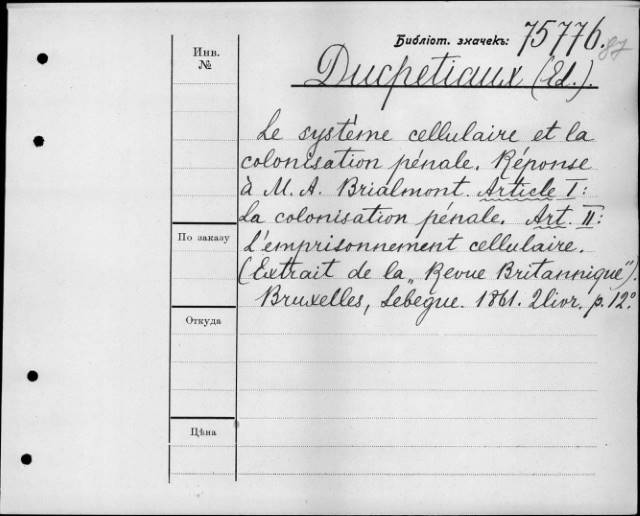 Библіот. значекъ: 75776.
87
Инв.
№
Ducpetiaux (Ed.).
Le système cellulaire et la
colonisation pénale. Réponse
à M. A. Brialmont. Article I:
La colonisation pénale. Art. II:
L'emprisonnement cellulaire.
(Extrait de la „Revue Britannique").
Bruxelles, Lebègue. 1861. 2 livr. p. 12º
По заказу
Откуда
Цѣна